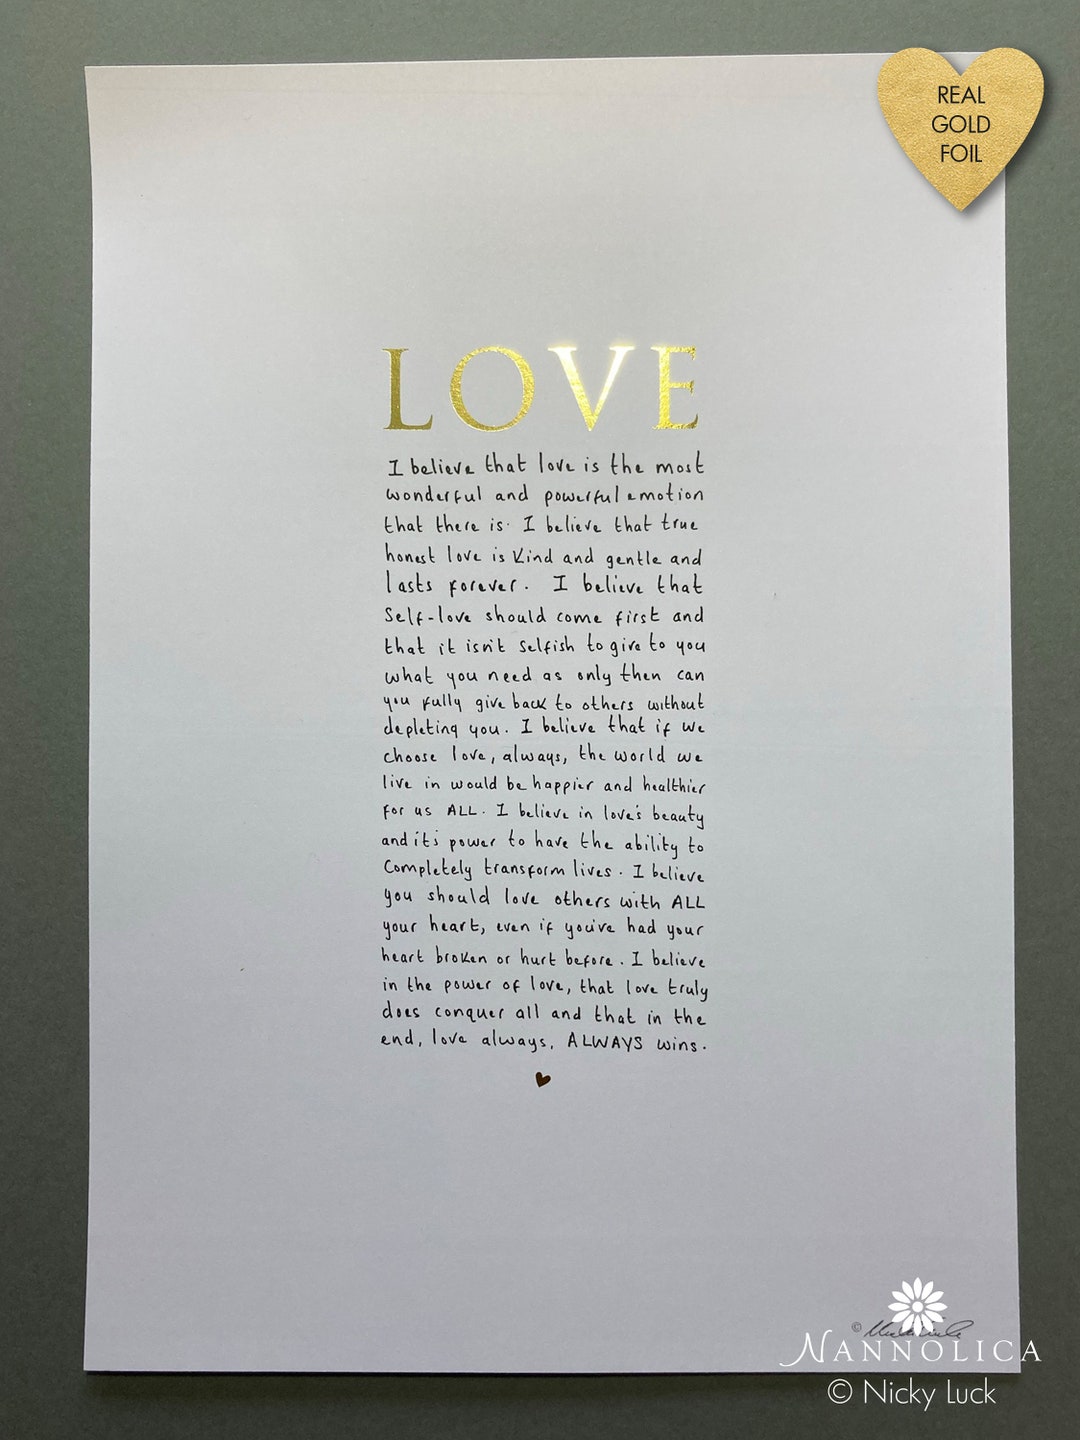 REAL
GOLD
FOIL
LOVE
I believe that love is the most
wonderful and powerful emotion
that there is. I believe that true
honest love is kind and gentle and
lasts forever. I believe that
Self-love should come first and
that it isn't selfish to give to you
what you need as only then can
you fully give back to others without
depleting you. I believe that if we
choose love, always, the world we
live in would be happier and healthier
for us ALL. I believe in love's beauty
and it's power to have the ability to
completely transform lives. I believe
you should love others with ALL
your heart, even if you've had your
heart broken or hurt before. I believe
in the power of love, that love truly
does conquer all and that in the
end, love always, ALWAYS wins.
©
NANNOLICA
© Nicky Luck